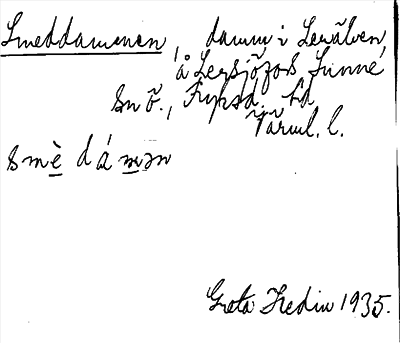 Smeddammen, damm i Lerälven,
å Lersjöfors Sunne
sn ö., Fryksd. hd
Värml. l.
smè dámən
Greta Hedin 1935.